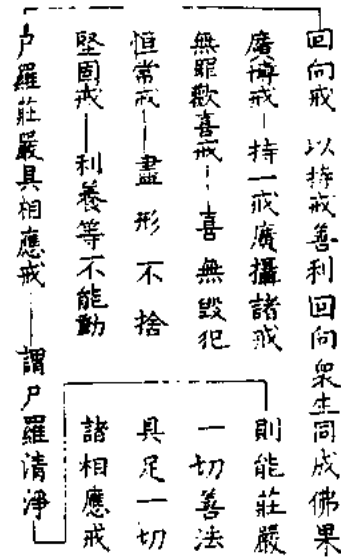 回向戒　以持戒善利回向眾生同成佛果
廣博戒－持一戒廣攝諸戒
無罪歡喜戒－喜無毀犯
恒常戒－盡形不捨
堅固戒－利養等不能動
尸羅莊嚴具相應戒－謂尸羅清淨
則能莊嚴
一切善法
具足一切
諸相應戒